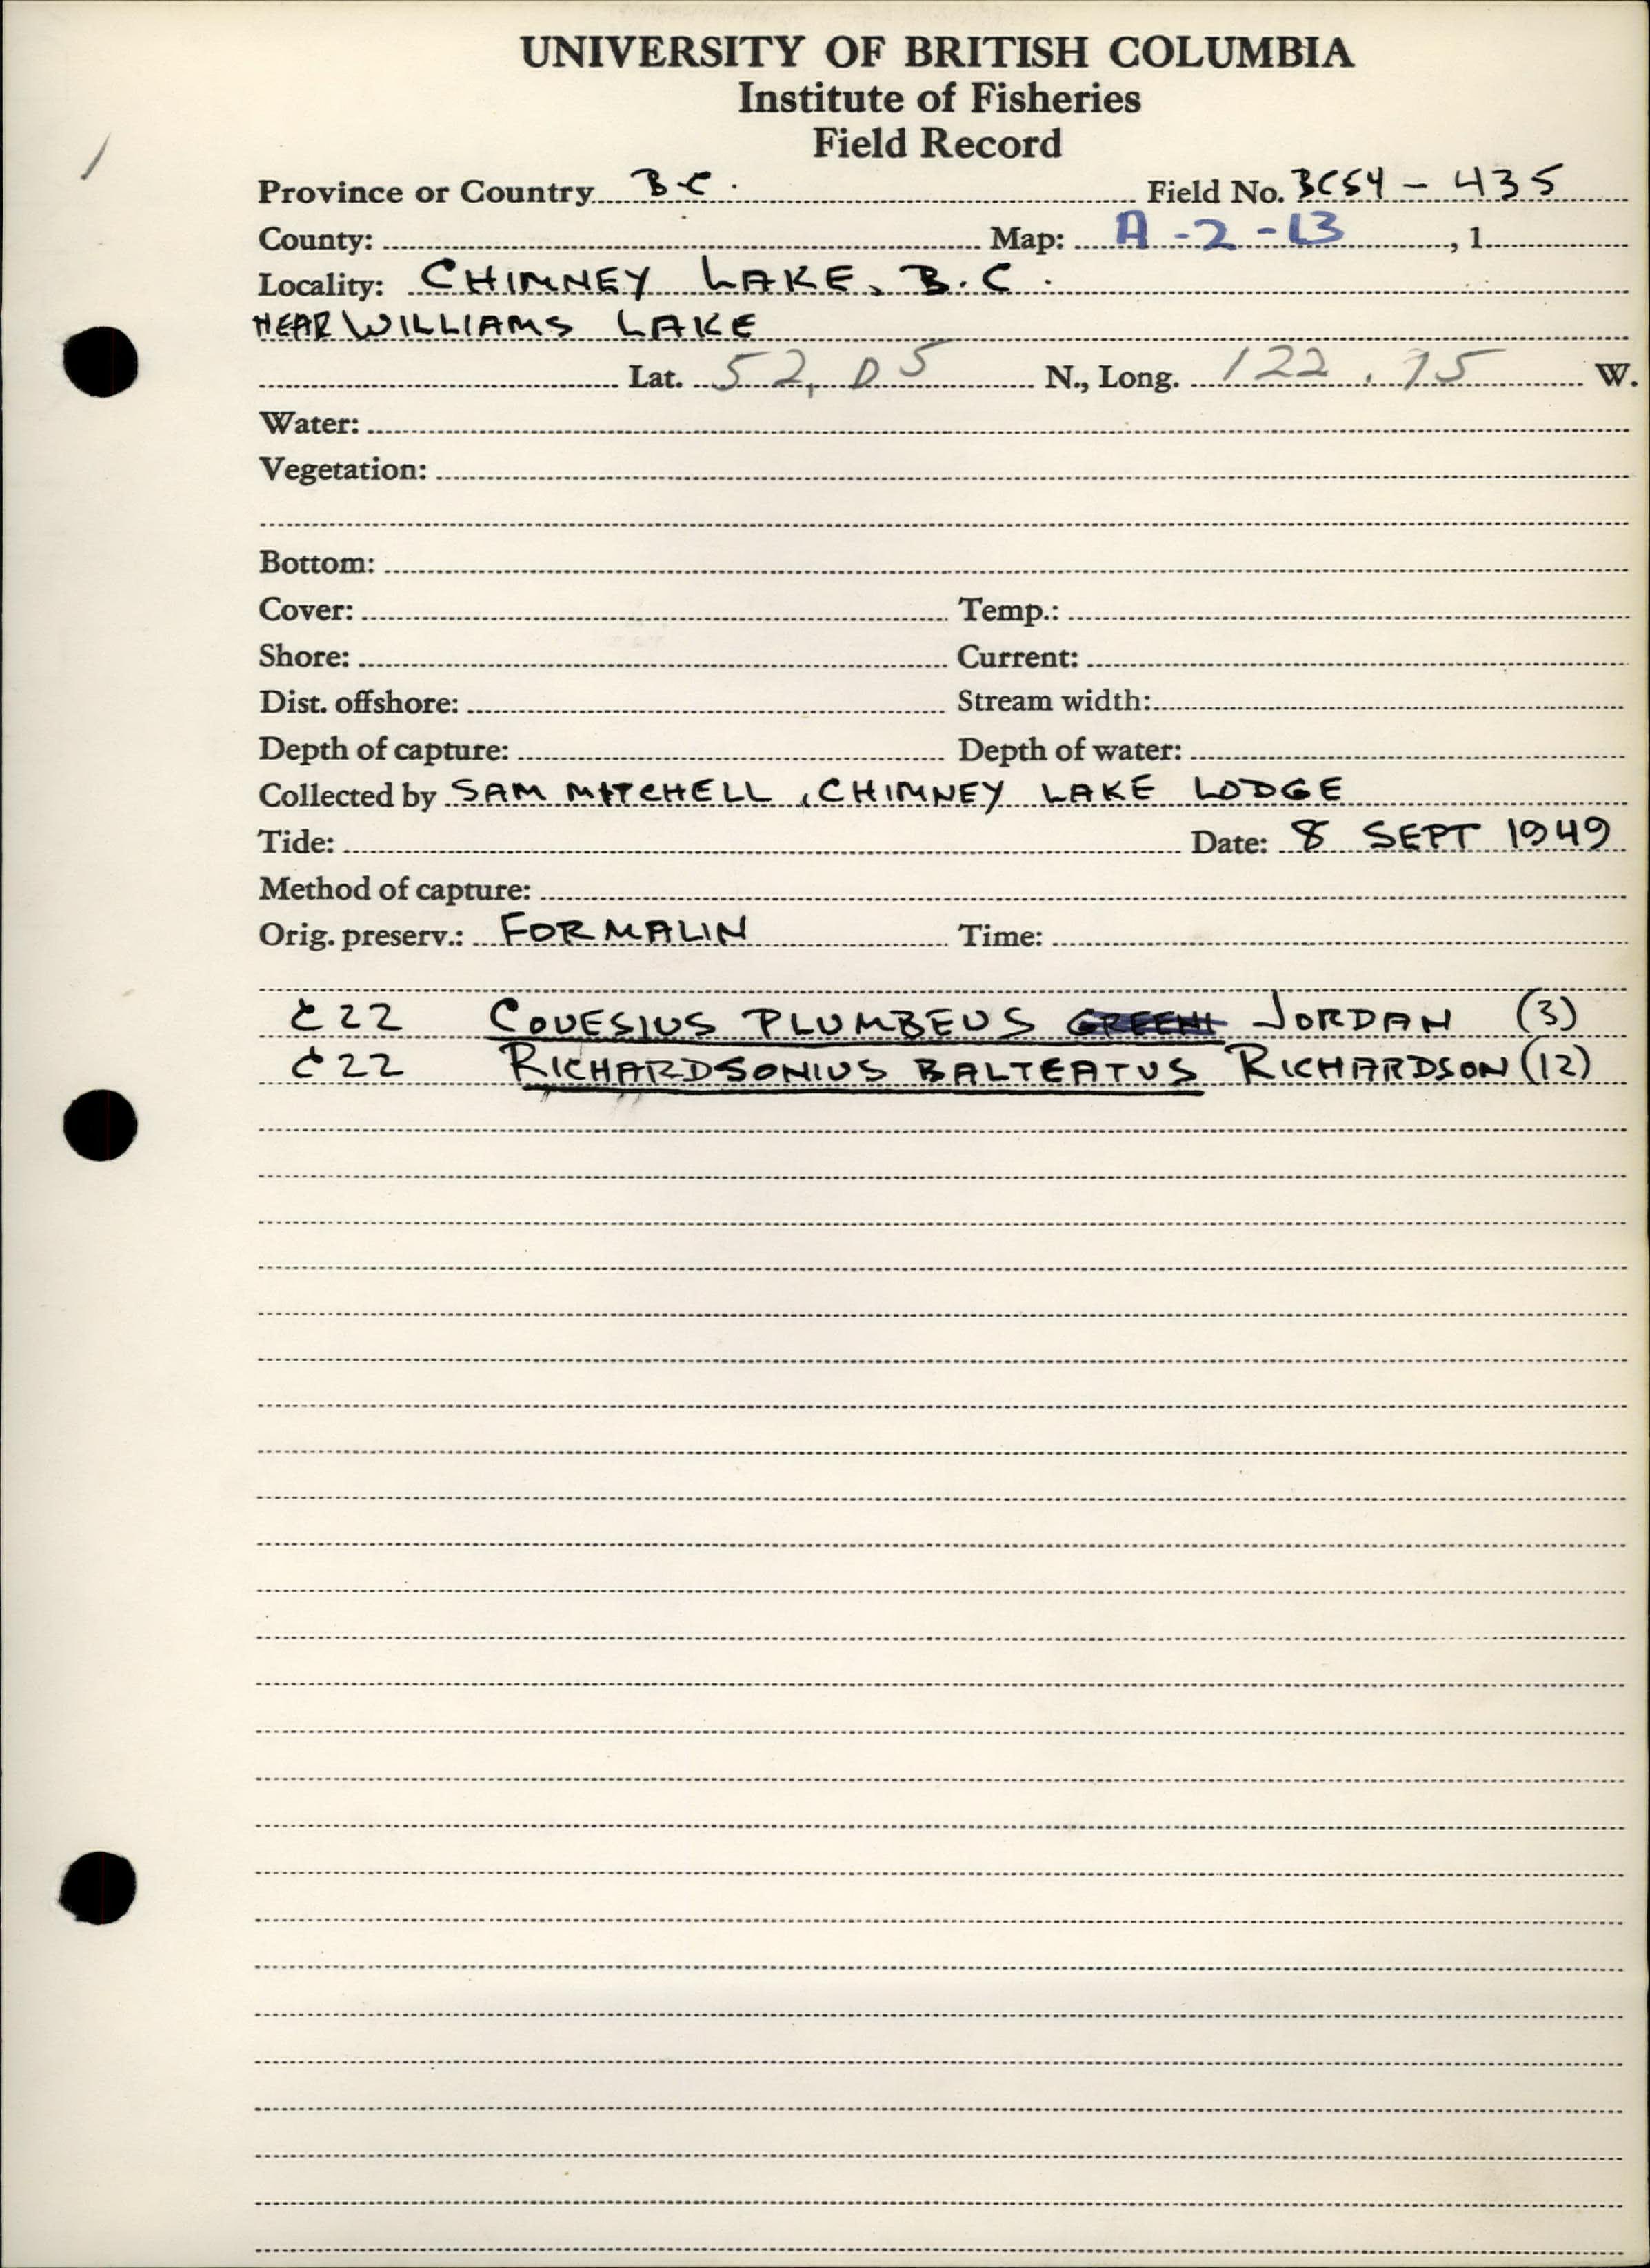 UNIVERSITY OF BRITISH COLUMBIA
Institute of Fisheries
Field Record
Province or Country B.C. Field No. BC54 - 435
County: Map: A-2-13, 1
Locality: CHIMNEY LAKE, B.C.
NEAR WILLIAMS LAKE
Lat. 52, 05 N., Long. 122, 15 W.
Water:
Vegetation:
Bottom:
Cover: Temp.:
Shore: Current:
Dist. offshore: Stream width:
Depth of capture: Depth of water:
Collected by SAM MITCHELL, CHIMNEY LAKE LODGE
Tide: Date: 8 SEPT 1949
Method of capture:
Orig. preserv.: FORMALIN Time:
C22 COUESIUS PLUMBEUS GREENI JORDAN (3)
C22 RICHARDSONIUS BALTEATUS RICHARDSON (12)